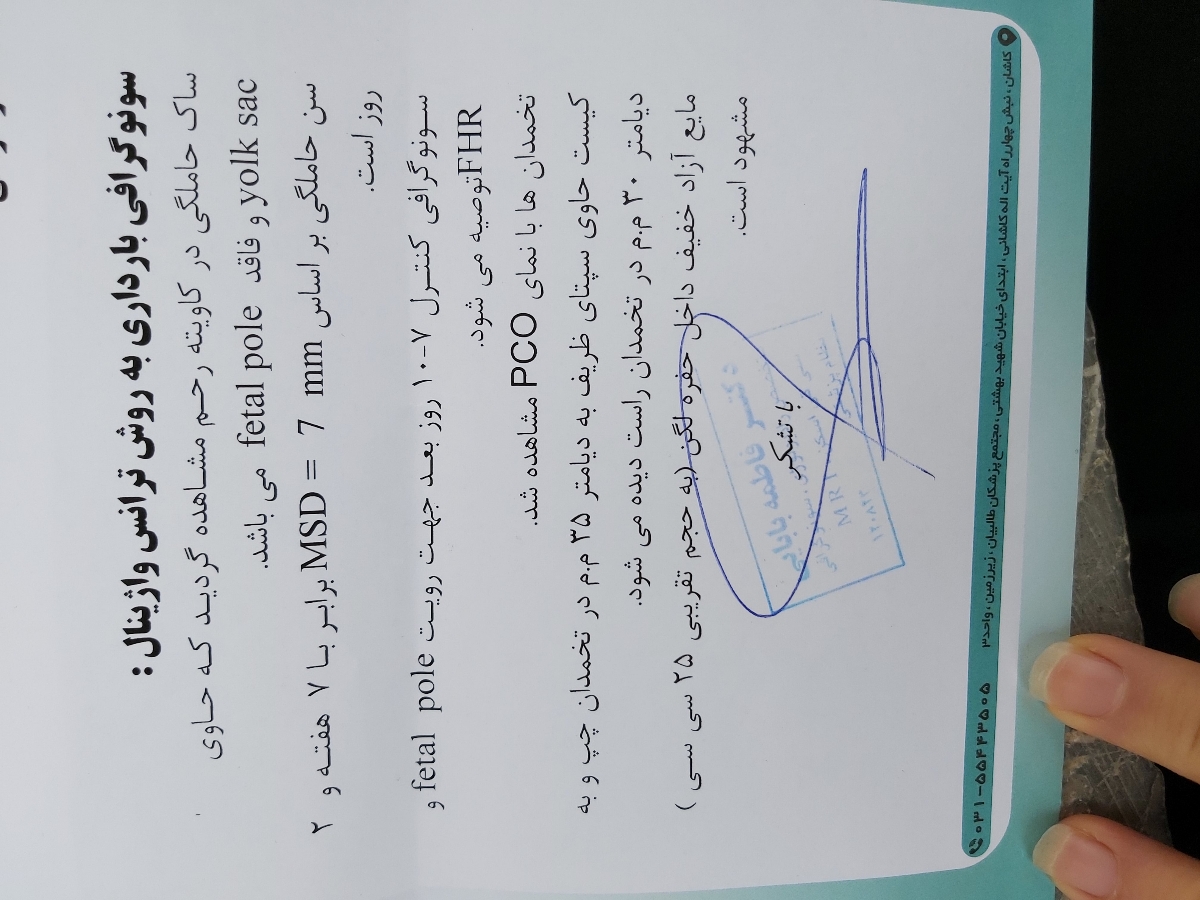 سونوگرافی بارداری به روش ترانس واژینال :
ساک حاملگی در کاویته رحم مشاهده گردید که حاوی
yolk sac و فاقد fetal pole می باشد.
سن حاملگی بر اساس MSD = 7 mm برابر با ۷ هفته و ۲
روز است.
سونوگرافی کنترل ۷-۱۰ روز بعد جهت رویت fetal pole و
FHR توصیه می شود.
تخمدان ها با نمای PCO مشاهده شد.
کیست حاوی سپتای ظریف به دیامتر ۳۵ م.م در تخمدان چپ و به
دیامتر ۳۰ م.م در تخمدان راست دیده می شود.
مایع آزاد خفیف داخل حفره لگن (به حجم تقریبی ۲۵ سی سی )
مشهود است.
با تشکر
دکتر فاطمه بابائی
MRI
کاشان، نبش چهارراه آیت اله کاشانی، ابتدای خیابان شهید بهشتی، مجتمع پزشکان طالبیان، زیرزمین، واحد۳
۰۳۱-۵۵۴۴۳۵۰۵